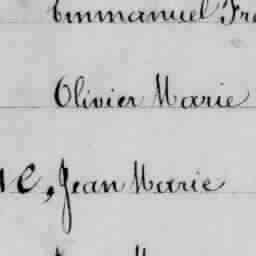 Emmanuel Fra
Olivier Marie
, Jean Marie